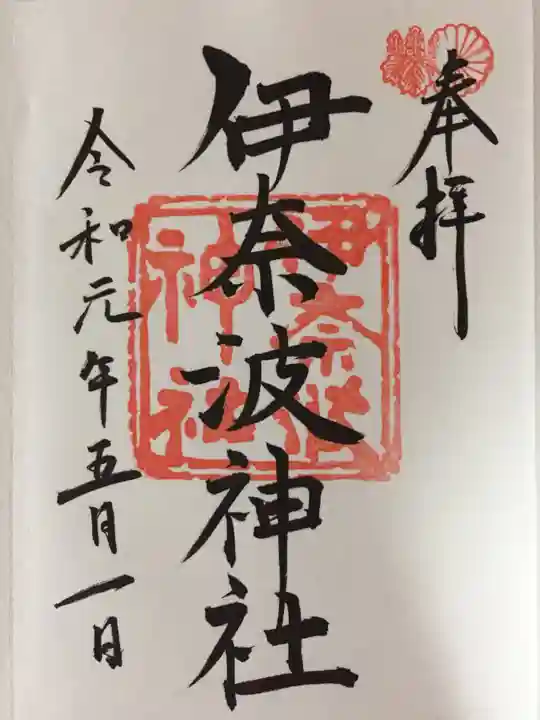 奉拝
伊奈波神社
令和元年五月一日
伊奈波
神社